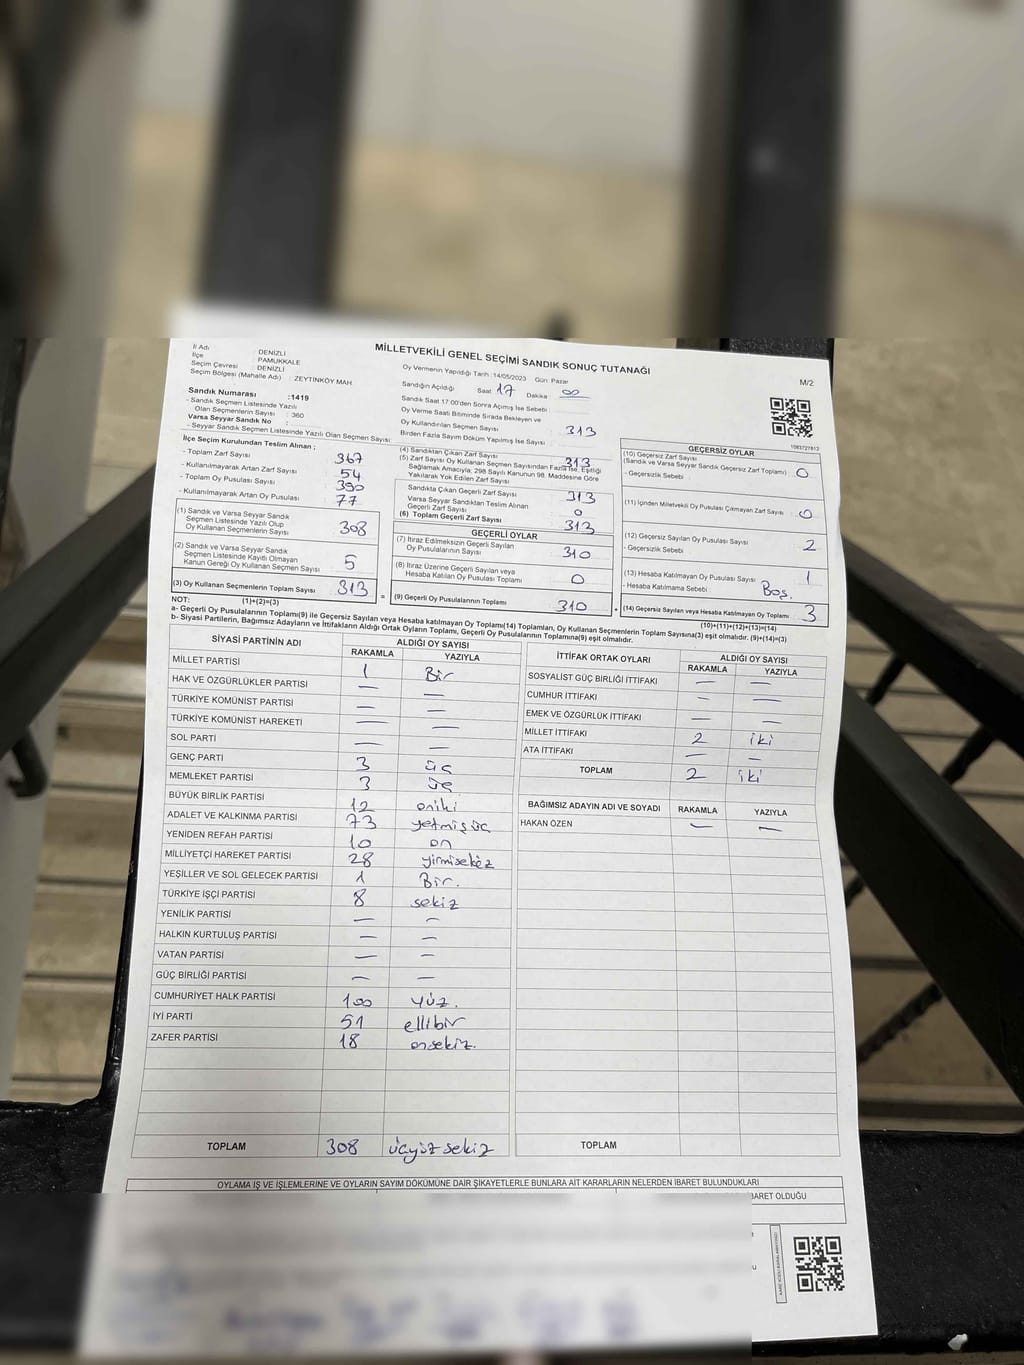 MİLLETVEKİLİ GENEL SEÇİMİ SANDIK SONUÇ TUTANAĞI
M/2
İl Adı : DENİZLİ
İlçe : PAMUKKALE
Seçim Çevresi : DENİZLİ
Seçim Bölgesi (Mahalle Adı) : ZEYTİNKÖY MAH
Sandık Numarası :1419
- Sandık Seçmen Listesinde Yazılı
Olan Seçmenlerin Sayısı : 360
Varsa Seyyar Sandık No :
- Seyyar Sandık Seçmen Listesinde Yazılı Olan Seçmen Sayısı:
Oy Vermenin Yapıldığı Tarih :14/05/2023 Gün: Pazar
Sandığın Açıldığı Saat 17 Dakika 00
Sandık Saat 17:00'den Sonra Açılmış İse Sebebi :
Oy Verme Saati Bitiminde Sırada Bekleyen ve
Oy Kullandırılan Seçmen Sayısı : 313
Birden Fazla Sayım Döküm Yapılmış İse Sayısı :
1083727812
İlçe Seçim Kurulundan Teslim Alınan ;
- Toplam Zarf Sayısı : 367
- Kullanılmayarak Artan Zarf Sayısı : 54
- Toplam Oy Pusulası Sayısı : 390
- Kullanılmayarak Artan Oy Pusulası : 77
(1) Sandık ve Varsa Seyyar Sandık
Seçmen Listesinde Yazılı Olup
Oy Kullanan Seçmenlerin Sayısı 308
(2) Sandık ve Varsa Seyyar Sandık
Seçmen Listesinde Kayıtlı Olmayan
Kanun Gereği Oy Kullanan Seçmen Sayısı 5
(3) Oy Kullanan Seçmenlerin Toplam Sayısı 313 =
(4) Sandıktan Çıkan Zarf Sayısı : 313
(5) Zarf Sayısı Oy Kullanan Seçmen Sayısından Fazla İse, Eşitliği
Sağlamak Amacıyla; 298 Sayılı Kanunun 98. Maddesine Göre
Yakılarak Yok Edilen Zarf Sayısı :
Sandıkta Çıkan Geçerli Zarf Sayısı 313
Varsa Seyyar Sandıktan Teslim Alınan
Geçerli Zarf Sayısı 0
(6) Toplam Geçerli Zarf Sayısı 313
GEÇERLİ OYLAR
(7) İtiraz Edilmeksizin Geçerli Sayılan
Oy Pusulalarının Sayısı 310
(8) İtiraz Üzerine Geçerli Sayılan veya
Hesaba Katılan Oy Pusulası Toplamı 0
(9) Geçerli Oy Pusulalarının Toplamı 310 +
GEÇERSİZ OYLAR
(10) Geçersiz Zarf Sayısı
(Sandık ve Varsa Seyyar Sandık Geçersiz Zarf Toplamı) 0
- Geçersizlik Sebebi :
(11) İçinden Milletvekili Oy Pusulası Çıkmayan Zarf Sayısı 0
(12) Geçersiz Sayılan Oy Pusulası Sayısı 2
- Geçersizlik Sebebi :
(13) Hesaba Katılmayan Oy Pusulası Sayısı 1
- Hesaba Katılmama Sebebi : Boş.
(14) Geçersiz Sayılan veya Hesaba Katılmayan Oy Toplamı 3
NOT: (1)+(2)=(3)
(10)+(11)+(12)+(13)=(14)
a- Geçerli Oy Pusulalarının Toplamı(9) ile Geçersiz Sayılan veya Hesaba katılmayan Oy Toplamı(14) Toplamları, Oy Kullanan Seçmenlerin Toplam Sayısına(3) eşit olmalıdır. (9)+(14)=(3)
b- Siyasi Partilerin, Bağımsız Adayların ve İttifakların Aldığı Ortak Oyların Toplamı, Geçerli Oy Pusulalarının Toplamına(9) eşit olmalıdır.
SİYASİ PARTİNİN ADI ALDIĞI OY SAYISI
RAKAMLA YAZIYLA
MİLLET PARTİSİ 1 Bir
HAK VE ÖZGÜRLÜKLER PARTİSİ — —
TÜRKİYE KOMÜNİST PARTİSİ — —
TÜRKİYE KOMÜNİST HAREKETİ — —
SOL PARTİ — —
GENÇ PARTİ 3 üç
MEMLEKET PARTİSİ 3 üç
BÜYÜK BİRLİK PARTİSİ 12 oniki
ADALET VE KALKINMA PARTİSİ 73 yetmişüç
YENİDEN REFAH PARTİSİ 10 on
MİLLİYETÇİ HAREKET PARTİSİ 28 yirmisekiz
YEŞİLLER VE SOL GELECEK PARTİSİ 1 Bir.
TÜRKİYE İŞÇİ PARTİSİ 8 sekiz
YENİLİK PARTİSİ — —
HALKIN KURTULUŞ PARTİSİ — —
VATAN PARTİSİ — —
GÜÇ BİRLİĞİ PARTİSİ — —
CUMHURİYET HALK PARTİSİ 100 yüz.
İYİ PARTİ 51 ellibir
ZAFER PARTİSİ 18 onsekiz.
TOPLAM 308 üçyüz sekiz
İTTİFAK ORTAK OYLARI ALDIĞI OY SAYISI
RAKAMLA YAZIYLA
SOSYALİST GÜÇ BİRLİĞİ İTTİFAKI — —
CUMHUR İTTİFAKI — —
EMEK VE ÖZGÜRLÜK İTTİFAKI — —
MİLLET İTTİFAKI 2 iki
ATA İTTİFAKI — —
TOPLAM 2 iki
BAĞIMSIZ ADAYIN ADI VE SOYADI RAKAMLA YAZIYLA
HAKAN ÖZEN — —
TOPLAM
OYLAMA İŞ VE İŞLEMLERİNE VE OYLARIN SAYIM DÖKÜMÜNE DAİR ŞİKAYETLERLE BUNLARA AİT KARARLARIN NELERDEN İBARET BULUNDUKLARI
BARET OLDUĞU